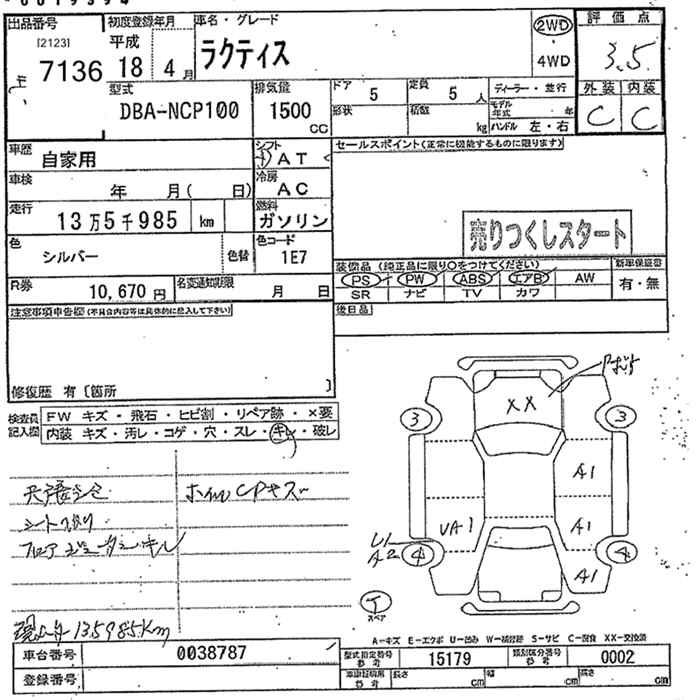 出品番号 初度登録年月 車名・グレード 2WD 評価点
[2123] 平成 ラクティス 3.5
7136 18 4月 4WD
外装 内装
型式 排気量 ドア 5 定員 5人 ディーラー・並行 C C
DBA-NCP100 1500 CC 形状 積数 kg モデル年式 年
ハンドル 左・右
車歴 自家用 シフト AT セールスポイント(正常に機能するものに限ります)
車検 年 月( 日) 冷房 AC
走行 13万5千985 km 燃料 ガソリン
売りつくしスタート
色 シルバー 色替 色コード 1E7
装備品 (純正品に限り○をつけてください) 新車保証書
R券 10,670円 名変通知期限 月 日 PS PW ABS エアB AW 有・無
SR ナビ TV カワ
注意事項申告欄(不具合内容等は具体的に記入して下さい) 後日品
修復歴 有〔箇所 〕
検査員記入欄 FW キズ・飛石・ヒビ割・リペア跡・×要
内装 キズ・汚レ・コゲ・穴・スレ・キレ・破レ
XX
3 3
A1
UA1 A1
U1
A2 4 4
A1
ホイルCPキズ
T
スペア
135985Km
A-キズ E-エクボ U-凹み W-補修跡 S-サビ C-腐食 XX-交換済
車台番号 0038787 型式指定番号 参考 15179 類別区分番号 参考 0002
登録番号 車車証明用 参考 長さ cm 幅 cm 高さ cm